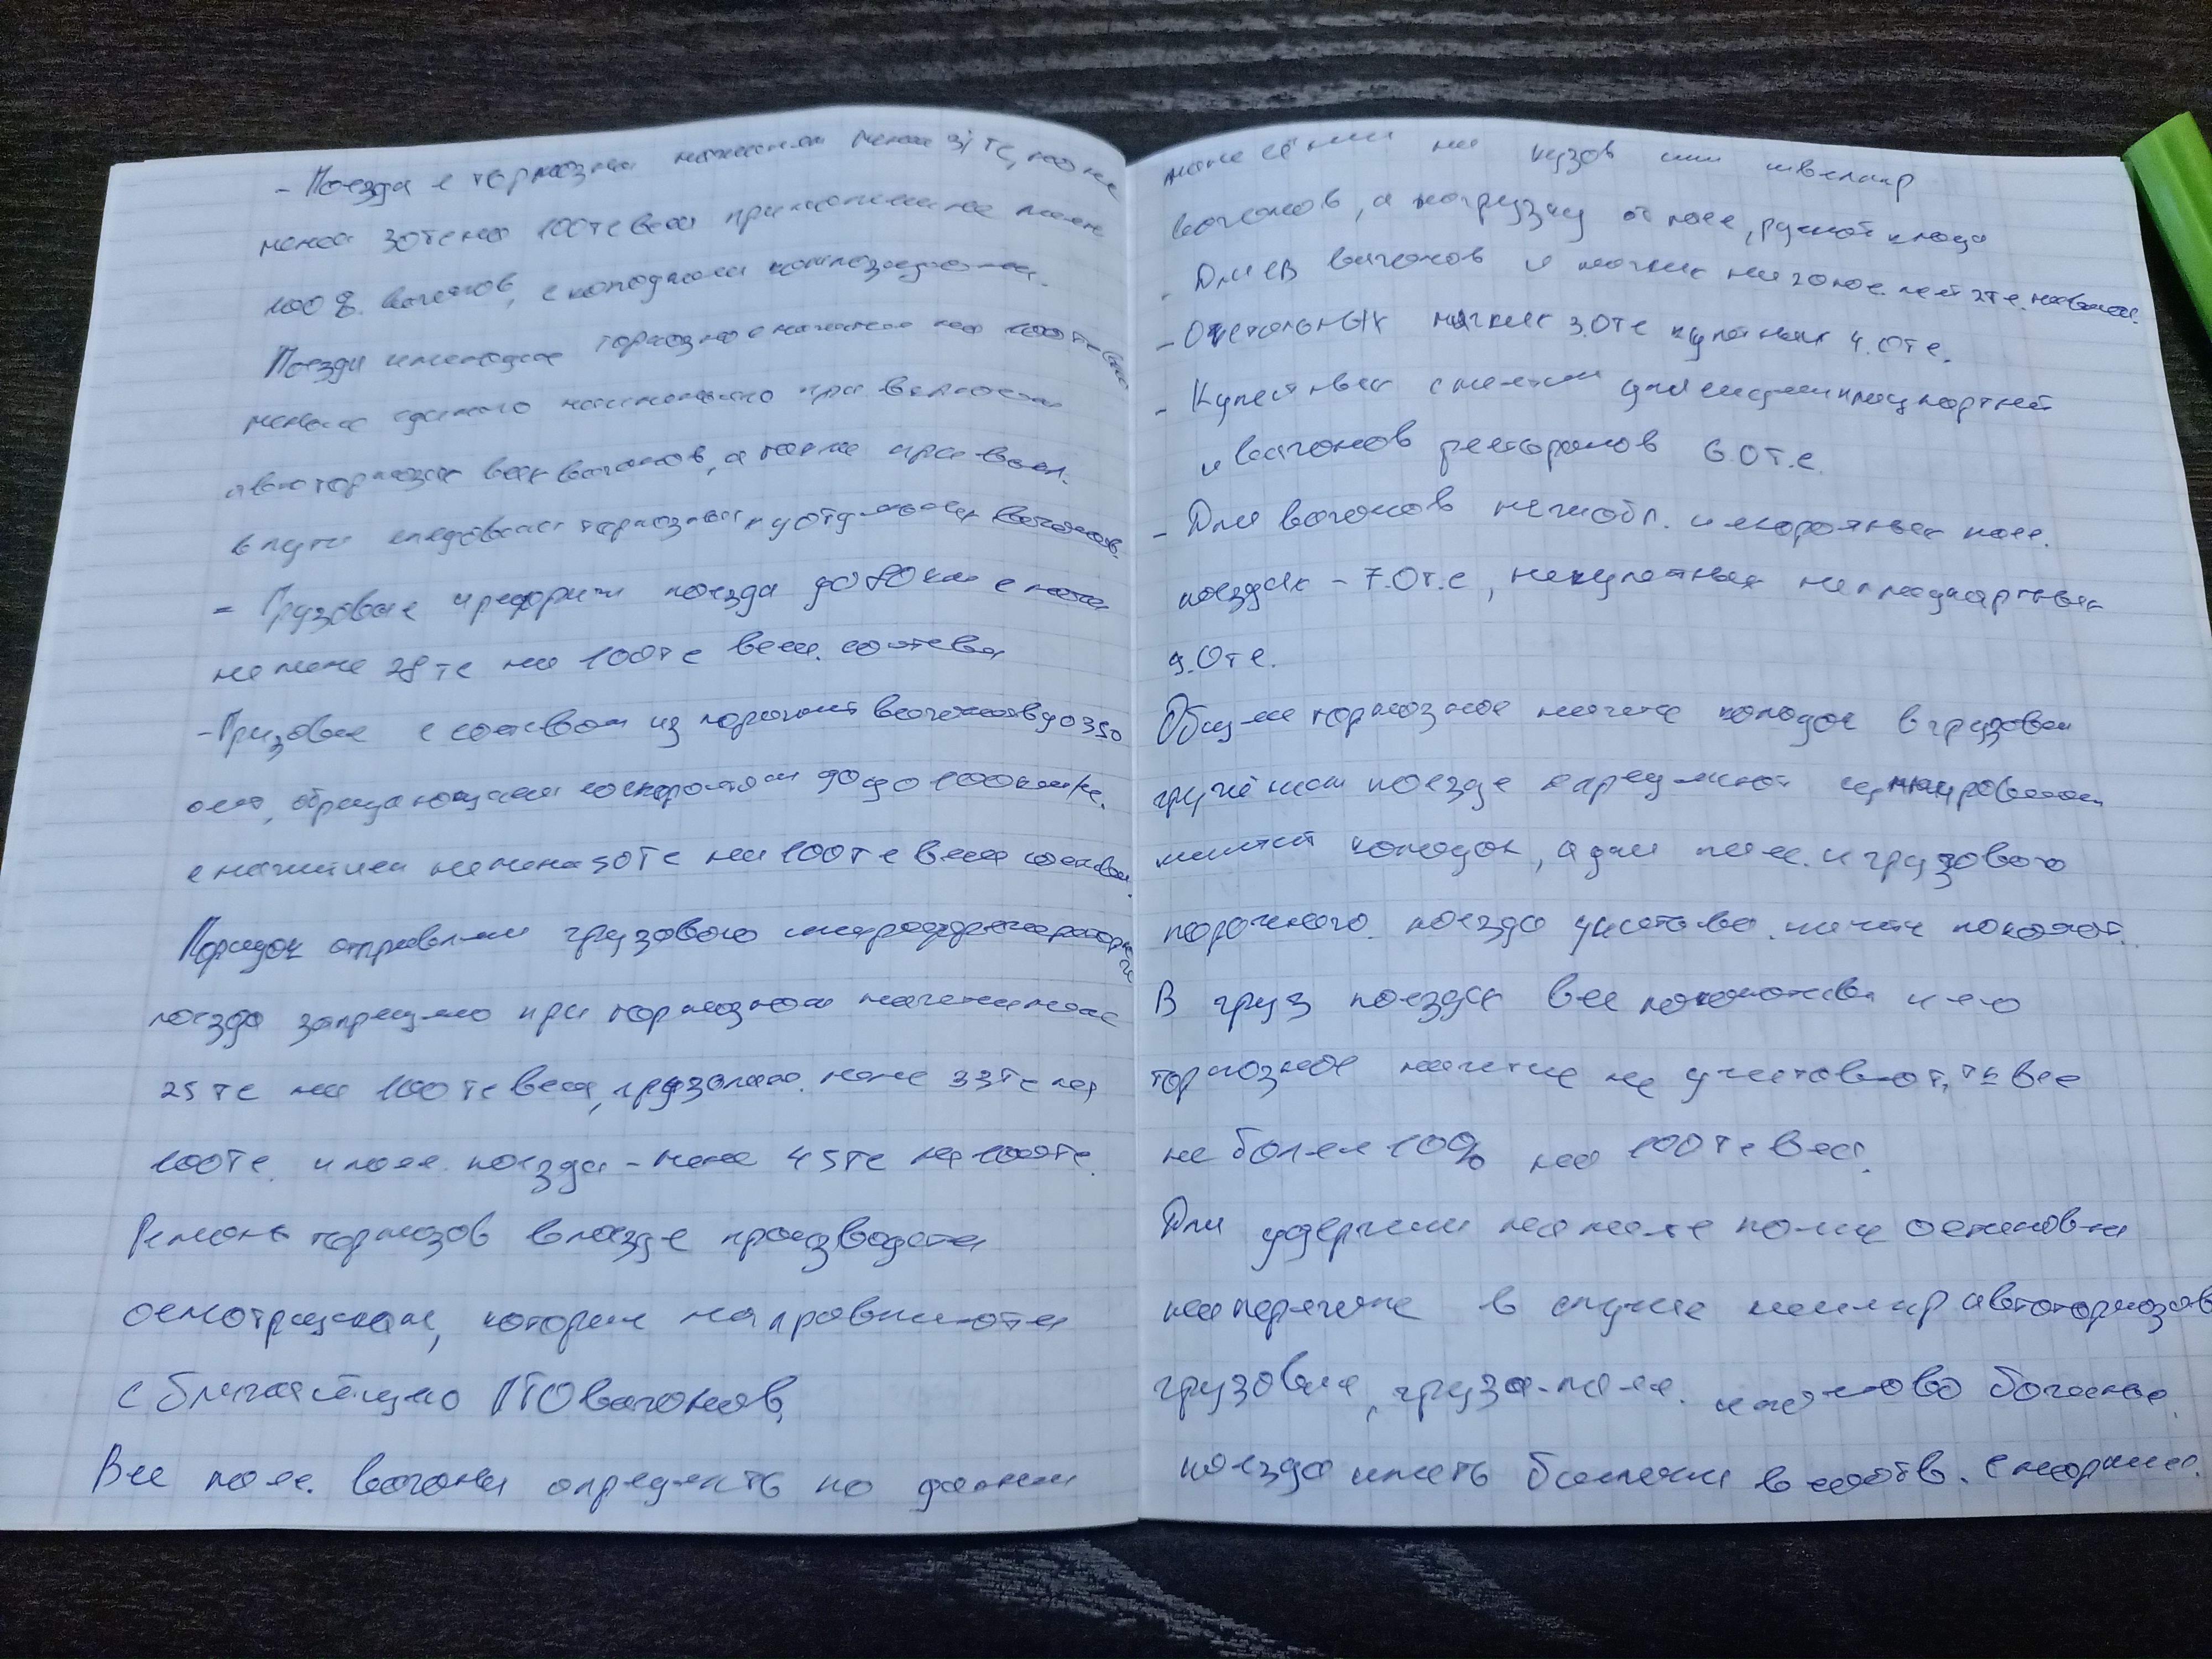 - Поезда с тормозным нажатием менее 31 тс, но не
менее 30 тс на 100 тс веса при наличии не менее
100 % вагонов, с колодками композиционн.
Поезда имеющие тормозное нажатие на 100 тс веса
менее единого наименьшего при
автотормозах всех вагонов, а также при выкл.
в пути следования тормозных у отдельных вагонов.
- Грузовые и рефриж поезда до 80 км с наж
не мене 28 тс на 100 тс веса. состава
- Грузовые с составом из порожних вагонов до 350
осей, обращающиеся со скоростями 90 до 100 км/ч.
с нажатием не мене 50 тс на 100 тс веса состава.
Порядок отправлении грузового и рефрижераторного
поезда запрещено при тормозном нажатии мене
25 тс на 100 тс веса, грузопас. мене 33 тс на
100 тс. и пасс. поезда - мене 45 тс на 100 тс.
Ремонт тормозов в поезде производится
осмотрщиками, которые направляются
с ближайшего ПТО вагонов.
Вес пасс. вагоны определять по данным
нанесёнии на кузов или швеллер
вагонов, а нагрузку от пасс, ручной клади
- Для СВ вагонов и мягких на 20 мест 2 тс. на вагон.
- Остальных мягких 3.0 тс купейных 4.0 тс.
- Купейных с местам для сидения плацкартных
и вагонов ресторанов 6.0 т.с.
- Для вагонов межобл. и скоростных пасс.
поездах - 7.0 т.с, некупейных неплацкартных
9.0 тс.
Общее тормозное нажатие колодок в грузовом
гружёном поезде определяют суммированием
нажатий колодок, а для пасс. и грузового
порожнего. поезда учётов. нажатие колодок.
В груз поездах вес локомотива и его
тормозное нажатие не учитывают, тк вес
не более 10% на 100 тс веса.
Для удержания на месте после остановки
на перегоне в случае неиспр автотормозов
грузовые, грузо-пасс. и почтово багажные
поезда иметь башмаки в соотв. с нормами.